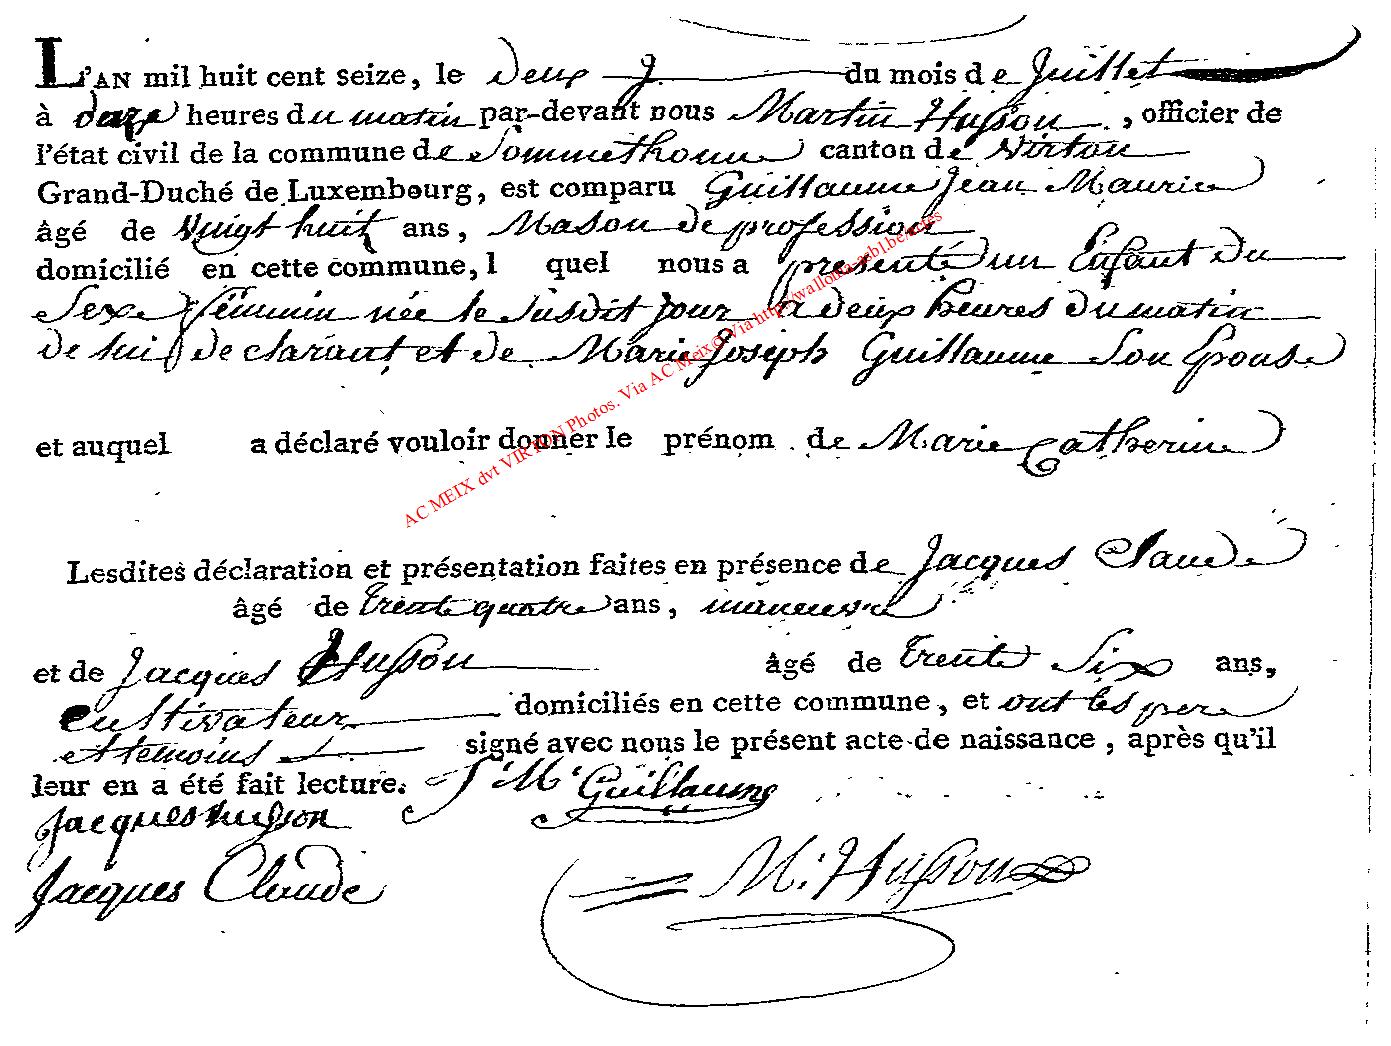 L'AN mil huit cent seize, le Deux du mois de Juillet
à heures du matin par-devant nous Martin Husson, officier de
l'état civil de la commune de Sommethonne canton de Virton
Grand-Duché de Luxembourg, est comparu Guillaume Jean Maurice
âgé de Vingt huit ans, Mason de profession
domicilié en cette commune, l quel nous a presenté un Enfant du
Sexe féminin née le susdit jour à deux heures du matin
de lui declarant et de Marie Joseph Guillaume Son Epouse
et auquel a déclaré vouloir donner le prénom de Marie Catherine
Lesdites déclaration et présentation faites en présence de Jacques Claude
âgé de trente quatre ans, manœuvre
et de Jacques Husson âgé de trente Six ans,
cultivateur domiciliés en cette commune, et ont les pere
et temoins signé avec nous le présent acte de naissance, après qu'il
leur en a été fait lecture. J M Guillaume
Jacques husson
Jacques Claude
M: Husson
AC MEIX dvt VIRTON Photos. Via AC Meix© Via http://wallonia-asbl.be/actes